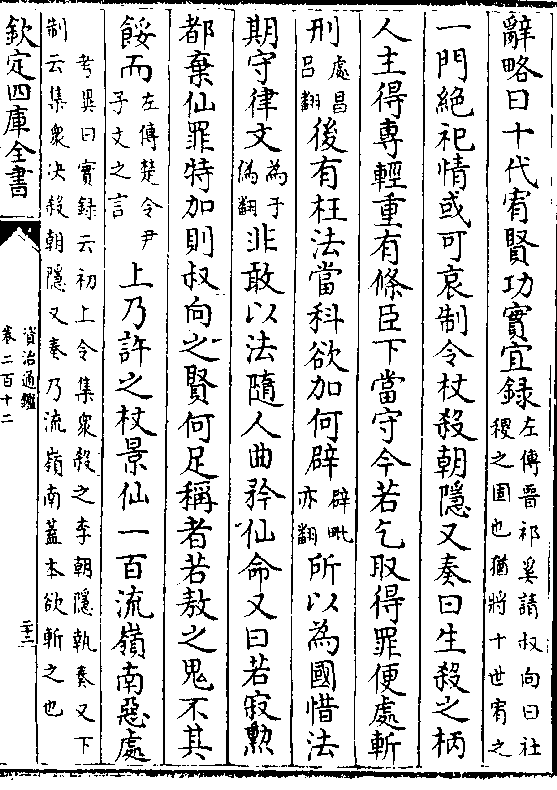 辭略曰十代宥賢功實宜録左傳晉祁奚請叔向曰社稷之固也猶將十世宥之
一門絶祀情或可哀制令杖殺朝隱又奏曰生殺之柄
人主得專輕重有條臣下當守今若乞取得罪便處斬
刑處昌吕翻後有枉法當科欲加何辟辟毗亦翻所以為國惜法
期守律文為于偽翻非敢以法隨人曲矜仙命又曰若寂勲
都棄仙罪特加則叔向之賢何足稱者若敖之鬼不其
餒而左傳楚令尹子文之言上乃許之杖景仙一百流嶺南惡處
考異曰實録云初上令集衆殺之李朝隱執奏又下
制云集衆決殺朝隱又奏乃流嶺南蓋本欲斬之也
欽定四庫全書
資治通鑑
卷二百十二
二十二